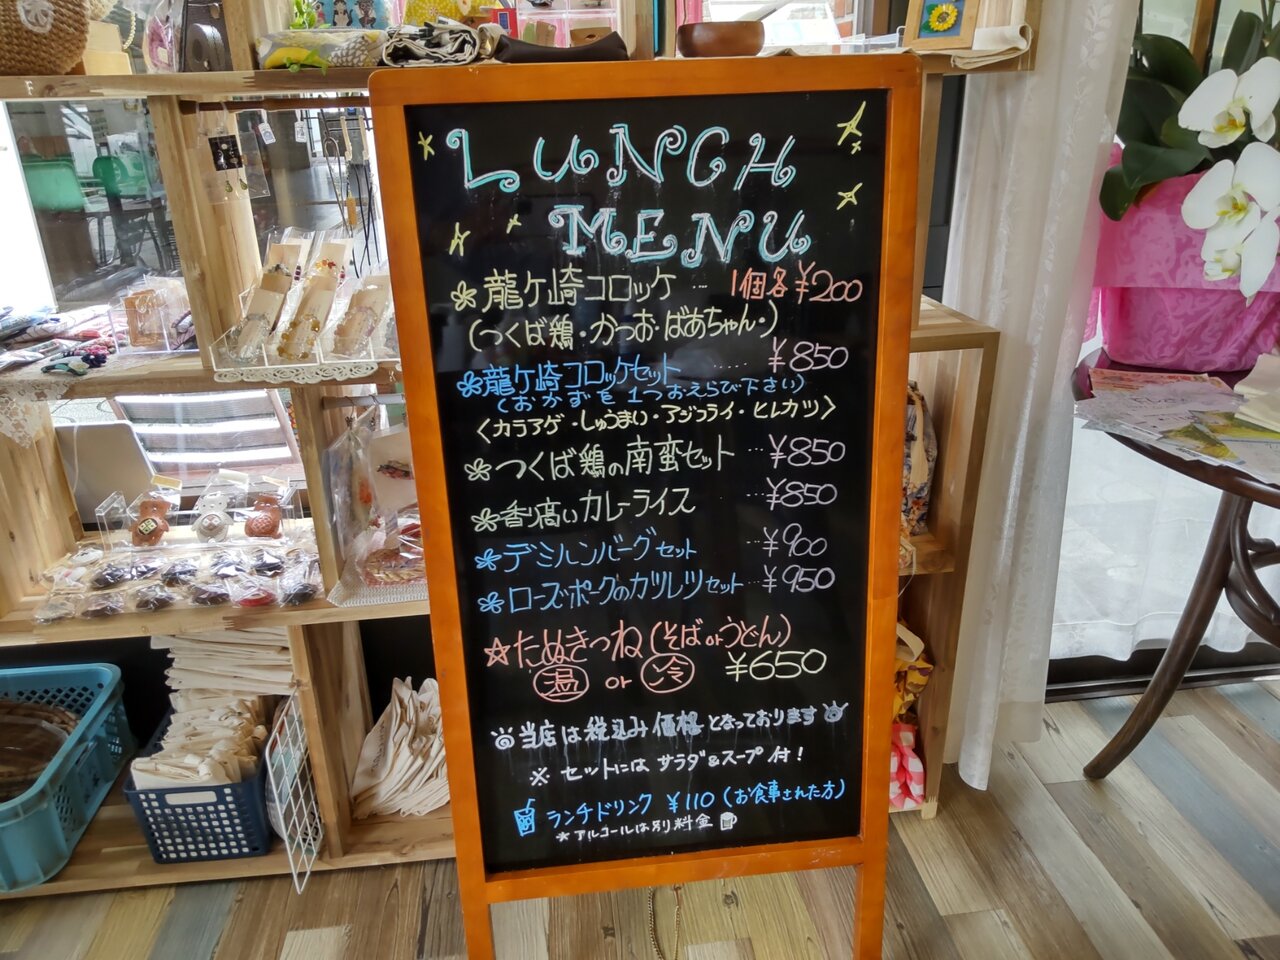 LUNCH
MENU
龍ケ崎コロッケ … 1個各¥200
(つくば鶏・かつお・ばあちゃん・)
龍ケ崎コロッケセット … ¥850
(おかずを1つおえらび下さい)
〈カラアゲ・しゅうまい・アジフライ・ヒレカツ〉
つくば鶏の南蛮セット … ¥850
香り高いカレーライス … ¥850
デミハンバーグセット … ¥900
ローズポークのカツレツセット … ¥950
☆たぬきつね(そばorうどん)
温 or 冷 ¥650
当店は税込み価格となっております
※ セットには サラダ&スープ 付!
ランチドリンク ¥110 (お食事された方)
*アルコールは別料金